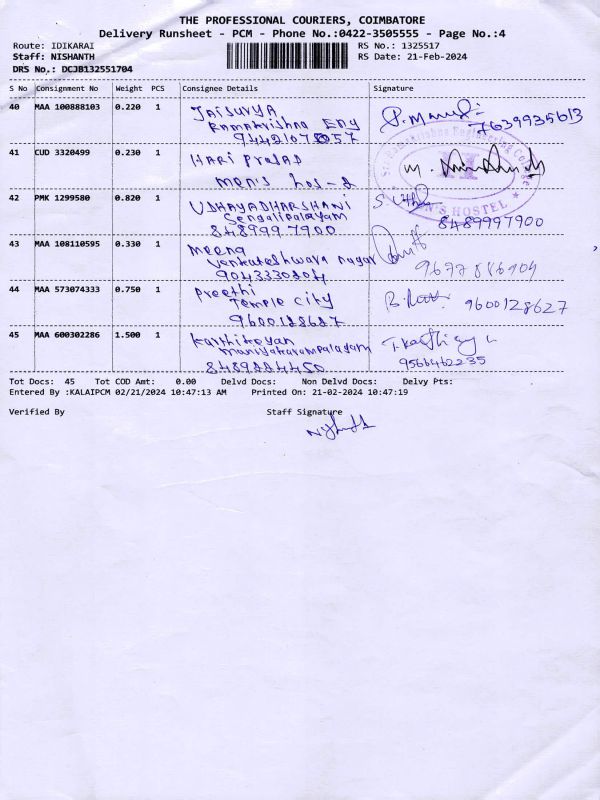 THE PROFESSIONAL COURIERS, COIMBATORE
Delivery Runsheet - PCM - Phone No.:0422-3505555 - Page No.:4
Route: IDIKARAI
RS No.: 1325517
Staff: NISHANTH
RS Date: 21-Feb-2024
DRS No.: DCJB132551704
S No Consignment No Weight PCS Consignee Details Signature
40 MAA 100888103 0.220 1 JAISURYA
Ramakrishna Eng
7639935613
41 CUD 3320499 0.230 1 HARI PRASAD
men's hos-2
Sri Ramakrishna Engineering College
MEN'S HOSTEL
42 PMK 1299580 0.820 1 UDHAYADHARSHANI
Sengalipalayam
8489997900 8489997900
43 MAA 108110595 0.330 1 meena
Venkateshwara nagar
9043330204
44 MAA 573074333 0.750 1 Preethi
Temple city 9600128627
9600128627
45 MAA 600302286 1.500 1 Karthikeyan
maniyakarampalayam
8489224450 9566462235
Tot Docs: 45 Tot COD Amt: 0.00 Delvd Docs: Non Delvd Docs: Delvy Pts:
Entered By :KALAIPCM 02/21/2024 10:47:13 AM Printed On: 21-02-2024 10:47:19
Verified By Staff Signature